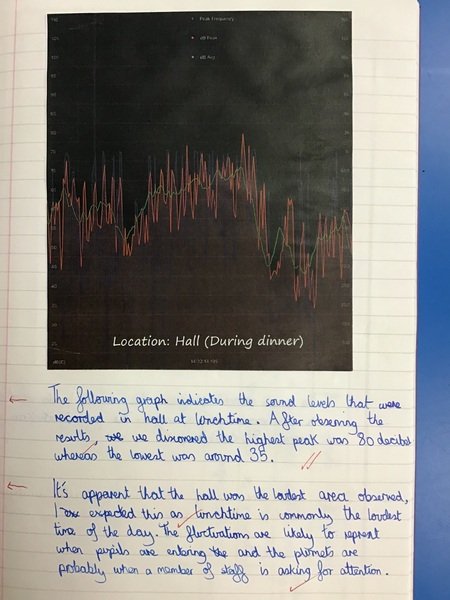 Peak Frequency
dB Peak
dB Avg
Location: Hall (During dinner)
The following graph indicates the sound levels that were
recorded in hall at lunchtime. After observing the
results, we discovered the highest peak was 80 decibel
whereas the lowest was around 35.
It's apparent that the hall was the loudest area observed,
I expected this as lunchtime is commonly the loudest
time of the day. The fluctuations are likely to represent
when pupils are entering and the plumets are
probably when a member of staff is asking for attention.